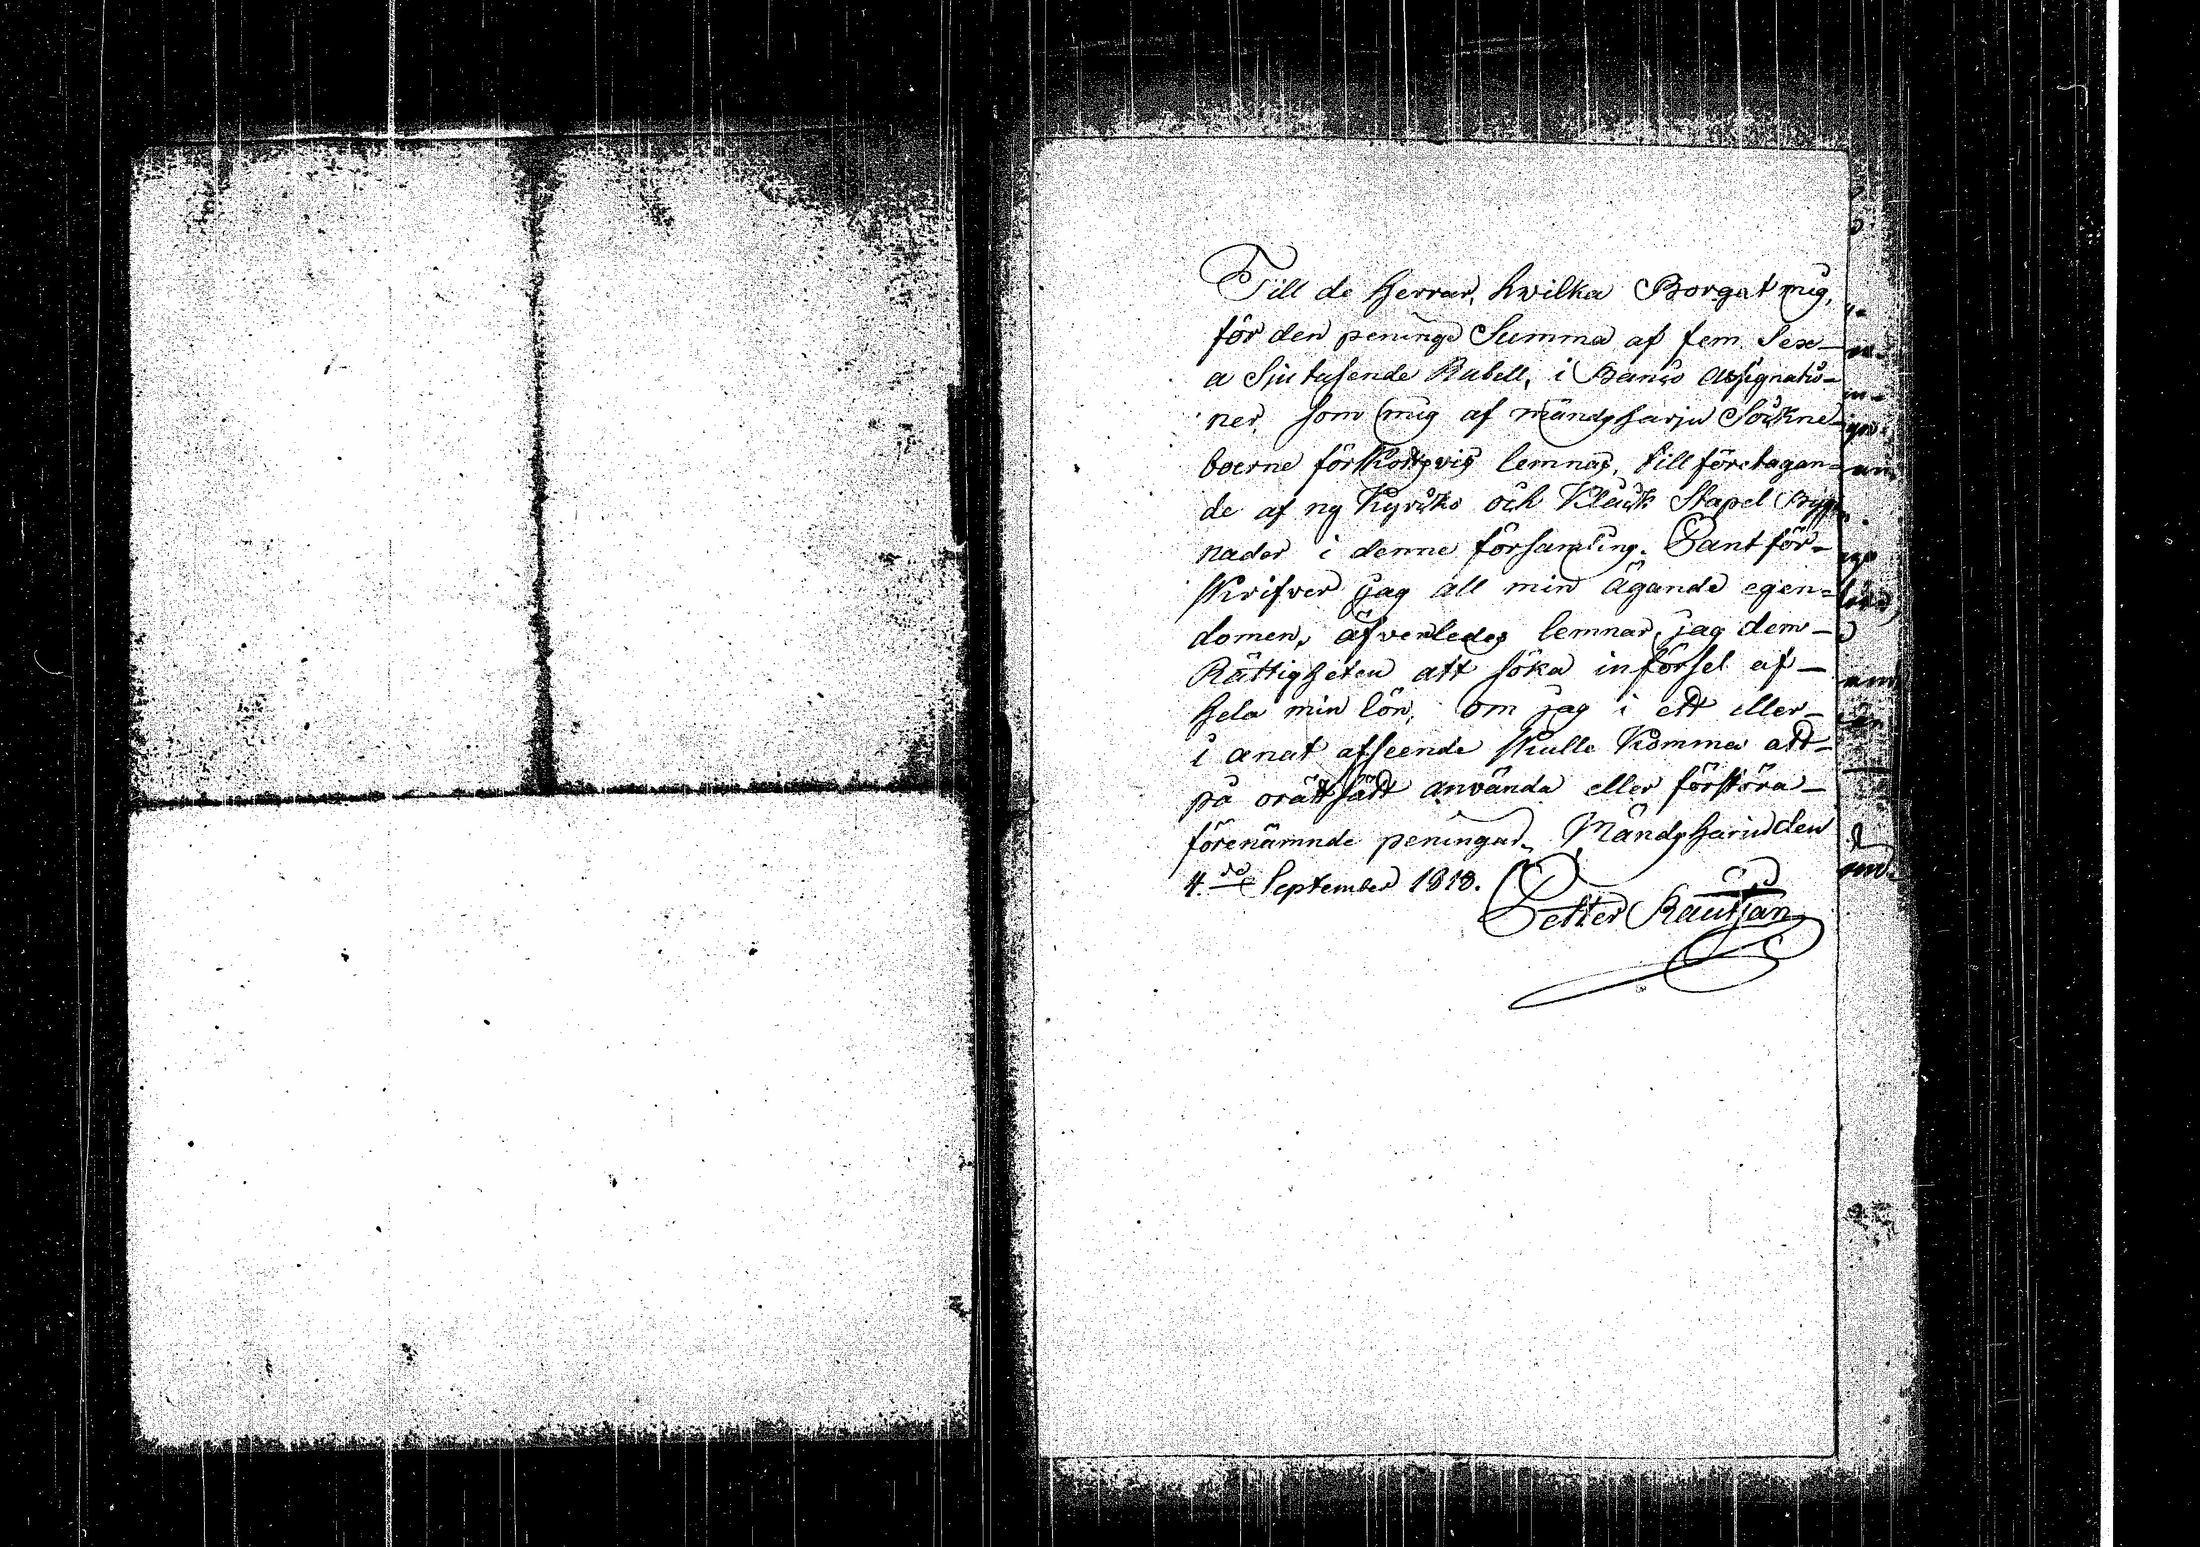 Till de Herrar, hvilka Borgat mig,
för den peninge Summa af fem Sex-
a Sjutusende Rubell, i Banco Assignatio-
ner, som mig af Mändyharju Sockne-
boerne förskottsvis lemnas, till företagan-
de af ny Kyrko och Klock Stapel Bygg-
nader i denne församling. Pantför-
skrifver jag all min ägande egen-
domen, äfvenledes lemnar jag dem-
Rättigheten att söka införsel af-
hela min lön, om jag i ett eller-
i anat afseende skulle komma att-
på orätt sätt använda eller förstöra-
förenämnde peningar. Mändyharju den
4.de September 1818.
Petter Rautjan